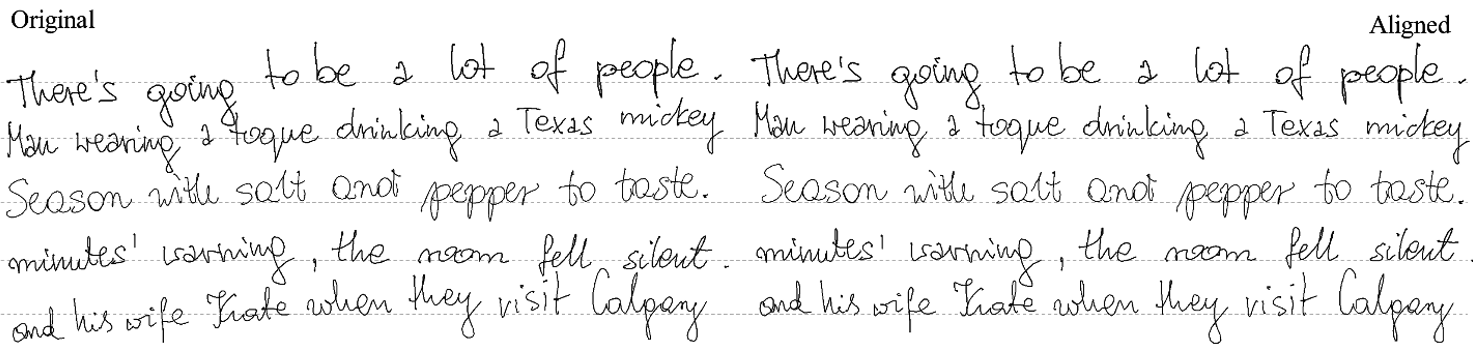 Original
Aligned
There's going to be a lot of people. There's going to be a lot of people.
Man wearing a toque drinking a Texas mickey Man wearing a toque drinking a Texas mickey
Season with salt and pepper to taste. Season with salt and pepper to taste.
minutes' warning, the room fell silent. minutes' warning, the room fell silent.
and his wife Kate when they visit Calgary and his wife Kate when they visit Calgary